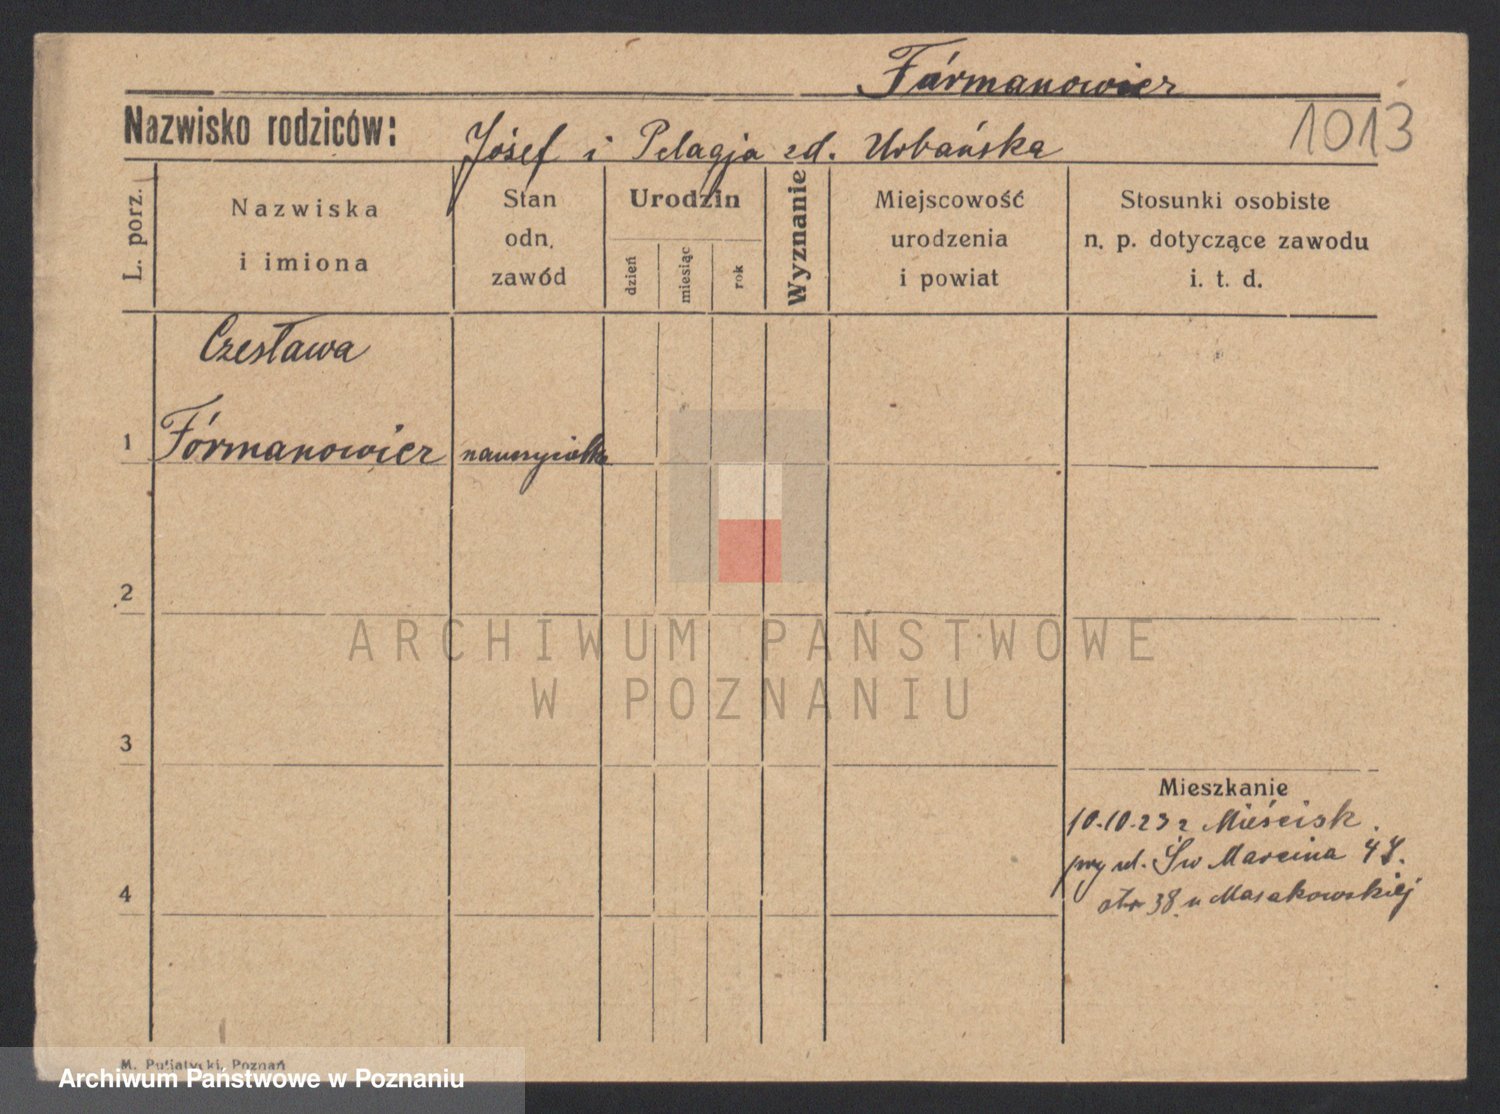 Fórmanowicz
Nazwisko rodziców: Józef i Pelagja zd. Urbańska
1013
L. porz.
Nazwiska
i imiona
Stan
odn.
zawód
Urodzin
dzień
miesiąc
rok
Wyznanie
Miejscowość
urodzenia
i powiat
Stosunki osobiste
n. p. dotyczące zawodu
i. t. d.
Czesława
1 Fórmanowicz nauczycielka
2
ARCHIWUM PAŃSTWOWE
W POZNANIU
3
Mieszkanie
10.10.23 z Mieścisk
przy ul. Św Marcina 47.
4
otr 38 u Masakowskiej
M. Putiatycki, Poznań
Archiwum Państwowe w Poznaniu